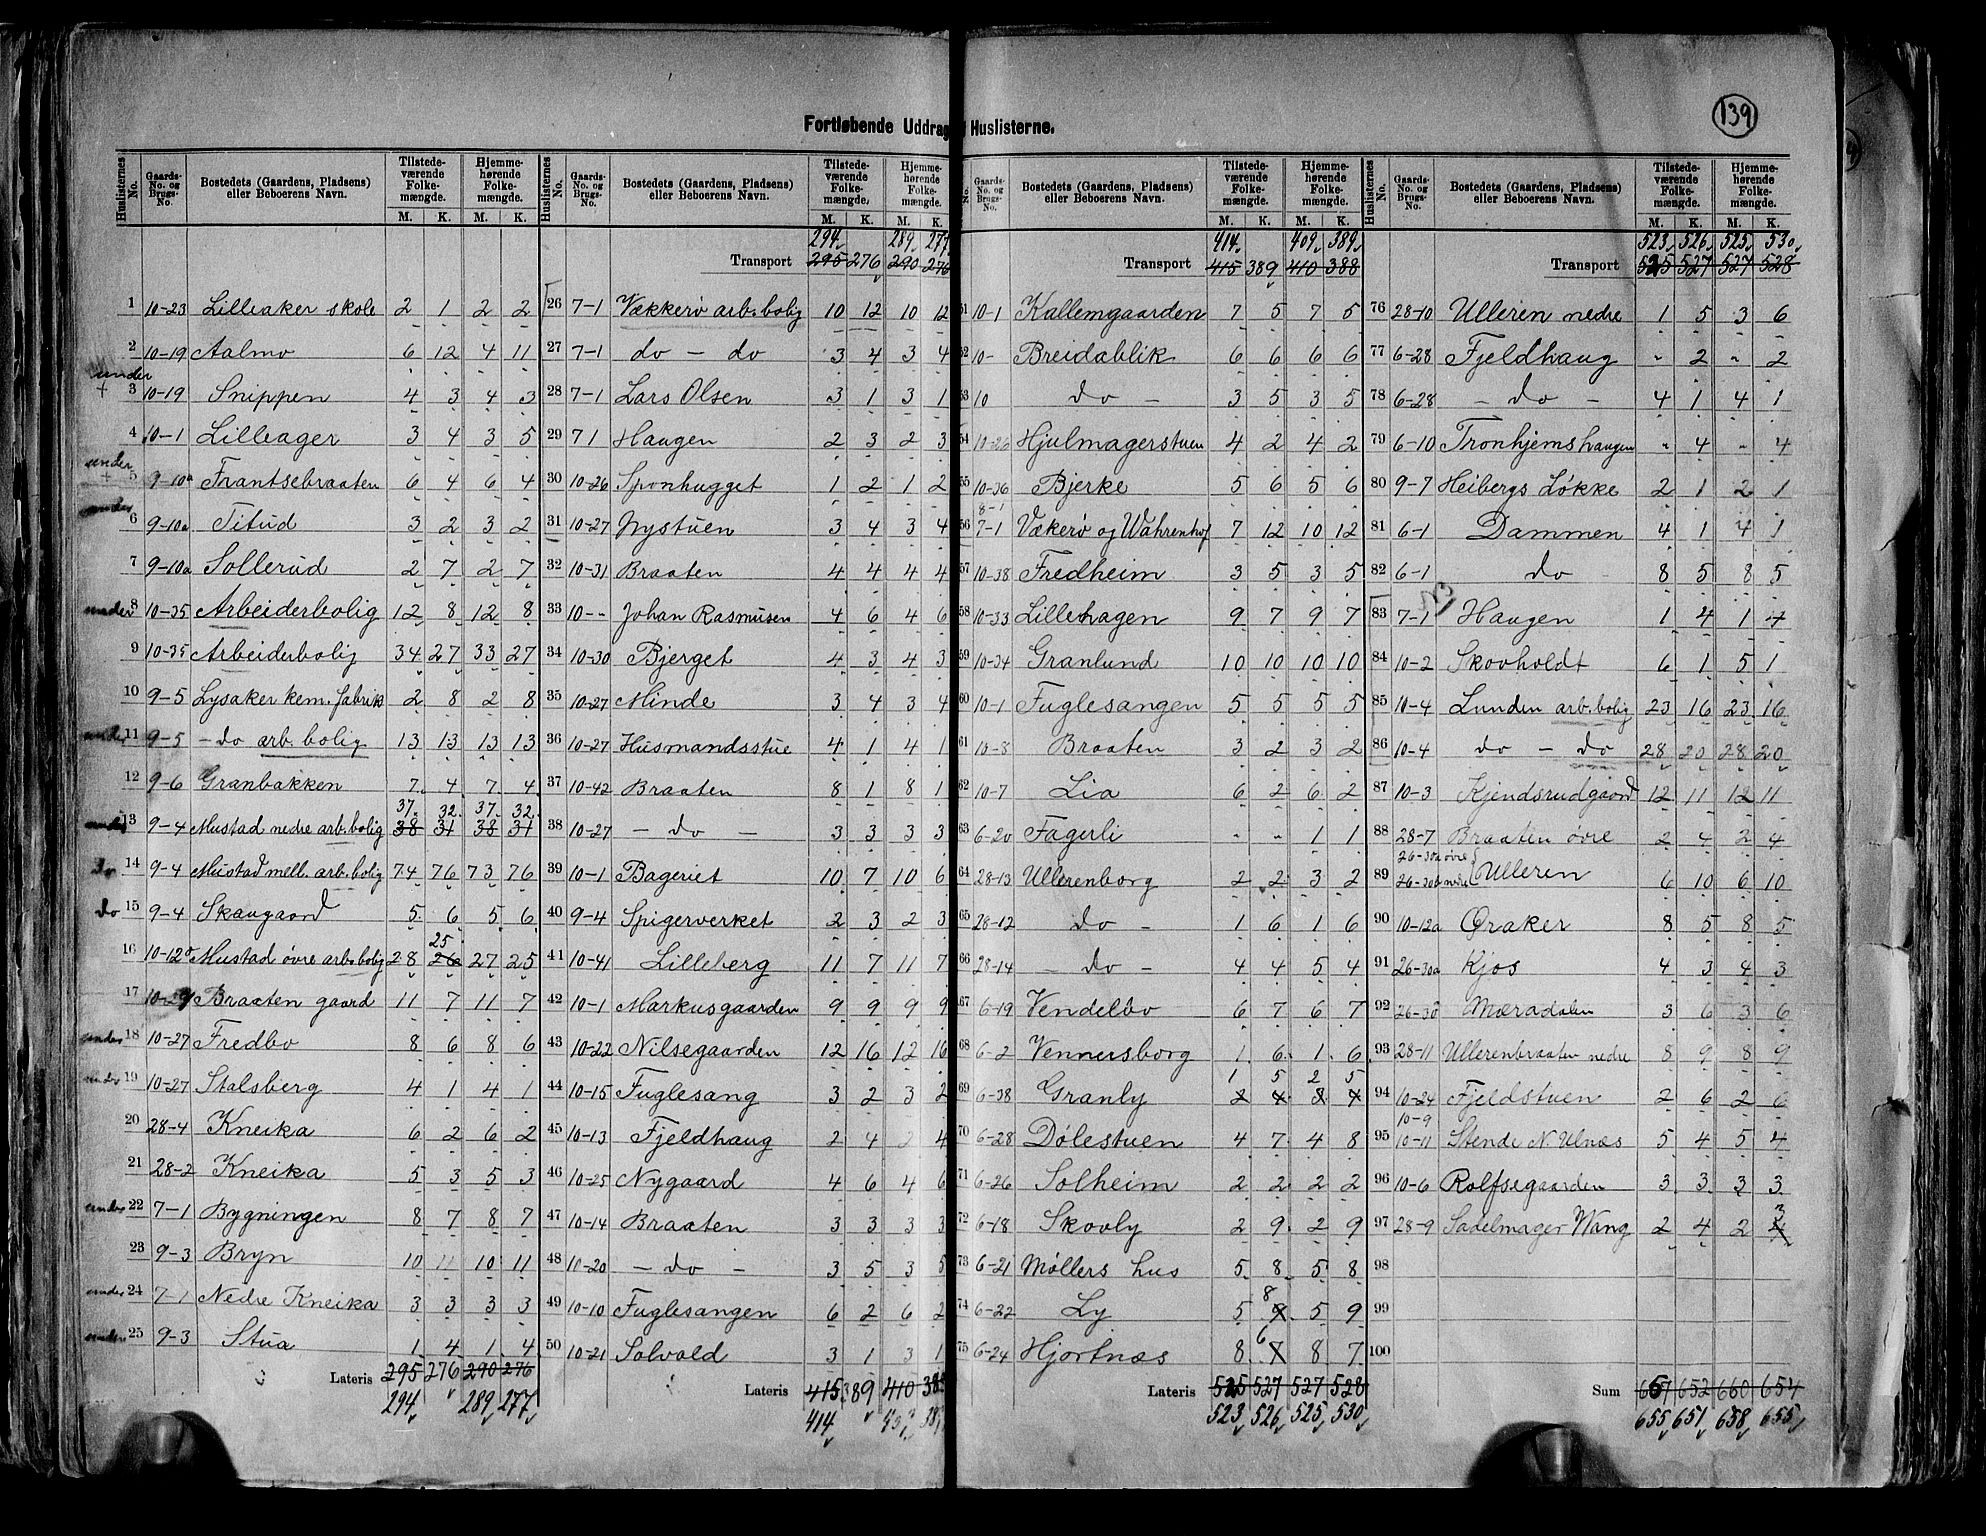 139
Fortløbende Uddrag Huslisterne.
Huslisternes No. | Gaards-No. og Brugs-No. | Bostedets (Gaardens, Pladsens) eller Beboerens Navn. | Tilstedeværende Folkemængde. M. K. | Hjemmehørende Folkemængde. M. K.
1 10-23 Lilleaker skole 2 1 2 2
2 10-19 Aalmo 6 12 4 11
under + 3 10-19 Snippen 4 3 4 3
4 10-1 Lilleager 3 4 3 5
under + 5 9-10a Frantsebraaten 6 4 6 4
under 6 9-10a Titud 3 2 3 2
7 9-10a Sollerud 2 7 2 7
under 8 10-35 Arbeiderbolig 12 8 12 8
9 10-35 Arbeiderbolig 34 27 33 27
10 9-5 Lysaker kem. fabrik 2 8 2 8
under 11 9-5 - do arb. bolig 13 13 13 13
12 9-6 Granbakken 7 4 7 4
37. 32. 37. 32.
under 13 9-4 Mustad nedre arb. bolig 38 31 38 31
do 14 9-4 Mustad mell. arb. bolig 74 76 73 76
do 15 9-4 Skaugaard 5 6 5 6
25
16 10-12c Mustad øvre arb. bolig 28 26 27 25
17 10-29 Braaten gaard 11 7 11 7
under 18 10-27 Fredbo 8 6 8 6
under 19 10-27 Stalsberg 4 1 4 1
20 28-4 Kneika 6 2 6 2
21 28-2 Kneika 5 3 5 3
under 22 7-1 Bygningen 8 7 8 7
23 9-3 Bryn 10 11 10 11
under 24 7-1 Nedre Kneika 3 3 3 3
under 25 9-3 Stua 1 4 1 4
Lateris 295 276 290 276
294 289 277
Huslisternes No. | Gaards-No. og Brugs-No. | Bostedets (Gaardens, Pladsens) eller Beboerens Navn. | Tilstedeværende Folkemængde. M. K. | Hjemmehørende Folkemængde. M. K.
294 289 277
Transport 295 276 290 276
26 7-1 Vækkerø arb. bolig 10 12 10 12
27 7-1 do - do 3 4 3 4
28 7-1 Lars Olsen 3 1 3 1
29 7 1 Haugen 2 3 2 3
30 10-26 Sponhugget 1 2 1 2
31 10-27 Nystuen 3 4 3 4
32 10-31 Braaten 4 4 4 4
33 10-- Johan Rasmusen 4 6 4 6
34 10-30 Bjerget 4 3 4 3
35 10-27 Minde 3 4 3 4
36 10-27 Husmandsstue 4 1 4 1
37 10-42 Braaten 8 1 8 1
38 10-27 - do - 3 3 3 3
39 10-1 Bageriet 10 7 10 6
40 9-4 Spigerverket 2 3 2 3
41 10-41 Lilleberg 11 7 11 7
42 10-1 Markusgaarden 9 9 9 9
43 10-22 Nilsegaarden 12 16 12 16
44 10-15 Fuglesang 3 2 3 2
45 10-13 Fjeldhaug 2 4 2 4
46 10-25 Nygaard 4 6 4 6
47 10-14 Braaten 3 3 3 3
48 10-20 - do - 3 5 3 5
49 10-10 Fuglesangen 6 2 6 2
50 10-21 Solvold 3 1 3 1
Lateris 415 389 410 388
414
Gaards-No. og Brugs-No. | Bostedets (Gaardens, Pladsens) eller Beboerens Navn. | Tilstedeværende Folkemængde. M. K. | Hjemmehørende Folkemængde. M. K.
414 409 389
Transport 415 389 410 388
51 10-1 Kallemgaarden 7 5 7 5
52 10- Breidablik 6 6 6 6
53 10 do - 3 5 3 5
54 10-26 Hjulmagerstuen 4 2 4 2
55 10-36 Bjerke 5 6 5 6
8-1
56 7-1 Vækerø og Wahrenhof 7 12 10 12
57 10-38 Fredheim 3 5 3 5
58 10-33 Lillehagen 9 7 9 7
59 10-34 Granlund 10 10 10 10
60 10-1 Fuglesangen 5 5 5 5
61 10-8 Braaten 3 2 3 2
62 10-7 Lia 6 2 6 2
63 6-20 Fagerli - - 1 1
64 28-13 Ullerenborg 2 2 3 2
65 28-12 do - 1 6 1 6
66 28-14 - do - 4 4 5 4
67 6-19 Vendelbo 6 7 6 7
68 6-2 Vennersborg 1 6 1 6
1 5 2 5
69 6-38 Granly 2 4 3 4
70 6-28 Dølestuen 4 7 4 8
71 6-26 Solheim 2 2 2 2
72 6-18 Skovly 2 9 2 9
73 6-21 Møllers hus 5 8 5 8
8
74 6-22 Ly 5 9 5 9
6
75 6-24 Hjortnæs 8 7 8 7
Lateris 525 527 527 528
523 526 525 530
Huslisternes No. | Gaards-No. og Brugs-No. | Bostedets (Gaardens, Pladsens) eller Beboerens Navn. | Tilstedeværende Folkemængde. M. K. | Hjemmehørende Folkemængde. M. K.
523 526 525 530
Transport 525 527 527 528
76 28-10 Ulleren nedre 1 5 3 6
77 6-28 Fjeldhaug - 2 - 2
78 6-28 - do - 4 1 4 1
79 6-10 Tronhjemshaugen - 4 - 4
80 9-7 Heibergs Løkke 2 1 2 1
81 6-1 Dammen 4 1 4 1
82 6-1 do 8 5 8 5
83 7-1 Haugen 1 4 1 4
84 10-2 Skovholdt 6 1 5 1
85 10-4 Lunden arb. bolig 23 16 23 16
86 10-4 do - do 28 20 28 20
87 10-3 Kjendsrudgaard 12 11 12 11
88 28-7 Braaten øvre 2 4 2 4
26-30a øvre
89 26-30b nedre Ulleren 6 10 6 10
90 10-12a Øraker 8 5 8 5
91 26-30a Kjos 4 3 4 3
92 26-30 Mæradalen 3 6 3 6
93 28-11 Ullerenbraaten nedre 8 9 8 9
94 10-24 Fjeldstuen 2 6 2 6
10-9
95 10-11 Stende N. Ulnæs 5 4 5 4
96 10-6 Rolfsegaarden 3 3 3 3
3
97 28-9 Sadelmager Wang 2 4 2 4
98
99
100
Sum 657 652 660 654
655 651 658 655